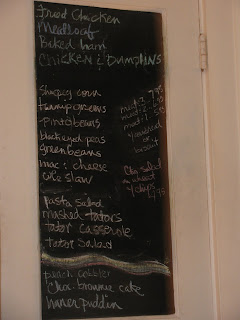 Fried Chicken
Meatloaf
Baked ham
Chicken & Dumplins
corn
turnip greens
pinto beans
blackeyed peas
green beans
mac & cheese
cole slaw
pasta salad
mashed tators
tator casserole
tator salad
meat: 3 7.95
meat: 2
meat: 1
cornbread
or
biscuit
peach cobbler
choc brownie cake
naner puddin